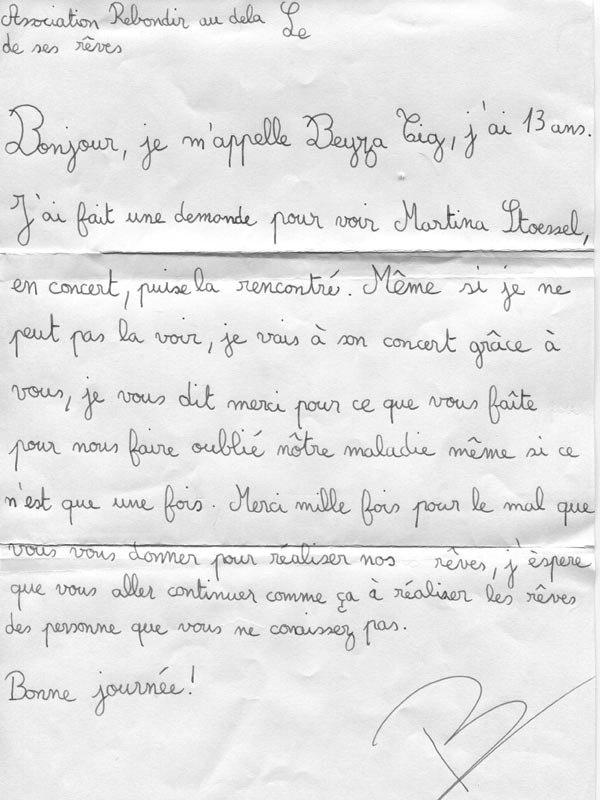 Association Rebondir au dela Le
de ses rêves
Bonjour, je m'appelle Beyza Tig, j'ai 13 ans.
J'ai fait une demande pour voir Martina Stoessel,
en concert, puise la rencontré. Même si je ne
peut pas la voir, je vais à son concert grâce à
vous, je vous dit merci pour ce que vous faîte
pour nous faire oublié nôtre maladie même si ce
n'est que une fois. Merci mille fois pour le mal que
vous vous donner pour réaliser nos rêves, j'èspere
que vous aller continuer comme ça à réaliser les rêves
des personne que vous ne conaissez pas.
Bonne journée!
B